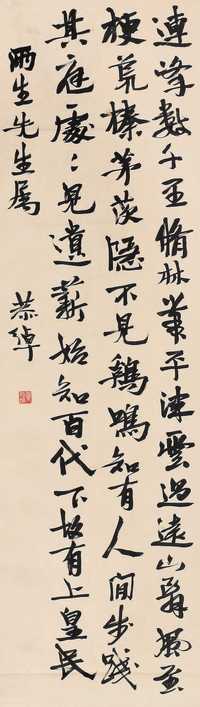 連峯數千里脩林帶平津雲過遠山翳風至
梗荒榛茅茨隱不見鷄鳴知有人閒步踐
其逕處〻見遺薪始知百代下故有上皇民
雨生先生屬
恭綽